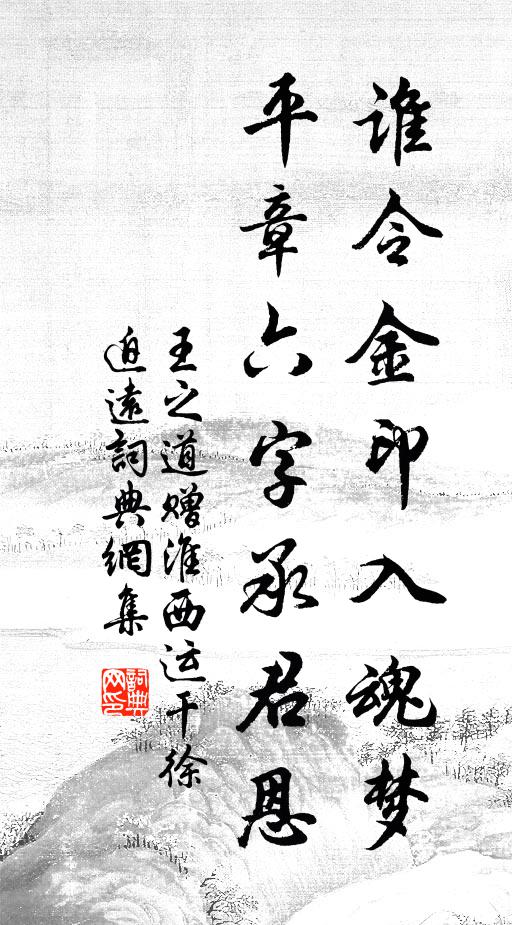 谁令金印入魂梦
平章六字承君恩
王之道赠淮西运干徐
迩遠詞典網集
詞典网印